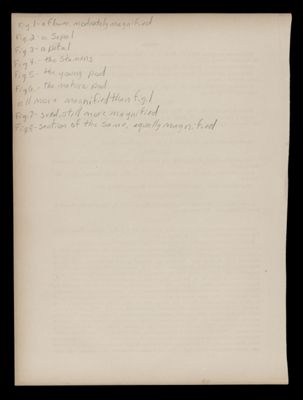 Fig 1- a flower, moderately magnified
Fig 2- a Sepal
Fig 3- a petal
Fig 4- the stamens
Fig 5- the young pod
Fig 6- the mature pod
all more magnified than fig 1
Fig 7- seed, still more magnified
Fig 8- section of the same, equally magnified